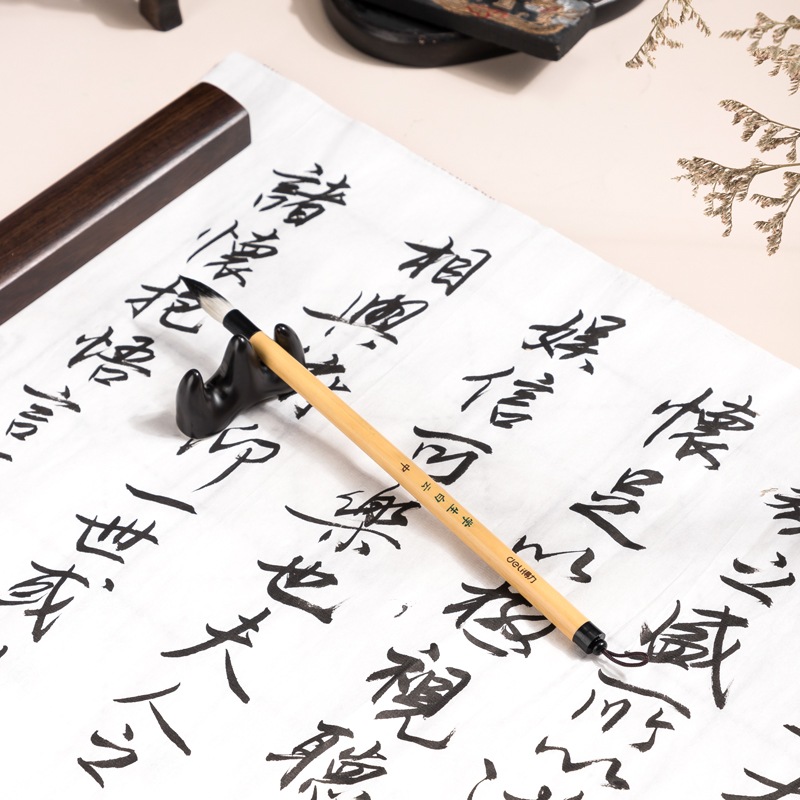 之盛所以
懷足以極視聽
娛信可樂也夫人之
相與仰一世或
諸懷抱悟言
白云 中
deli得力